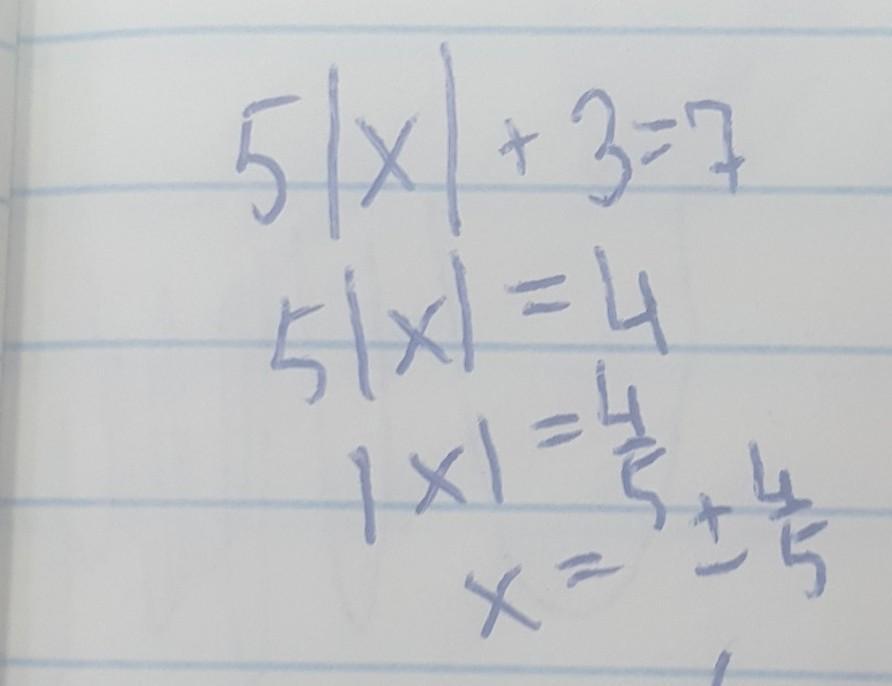 5|x| + 3 = 7
5|x| = 4
|x| = 4/5
x = ± 4/5